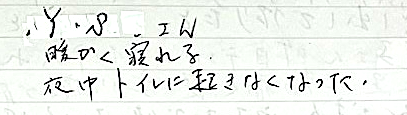 .Y.S. IW
暖かく寝れる.
夜中トイレに起きなくなった.